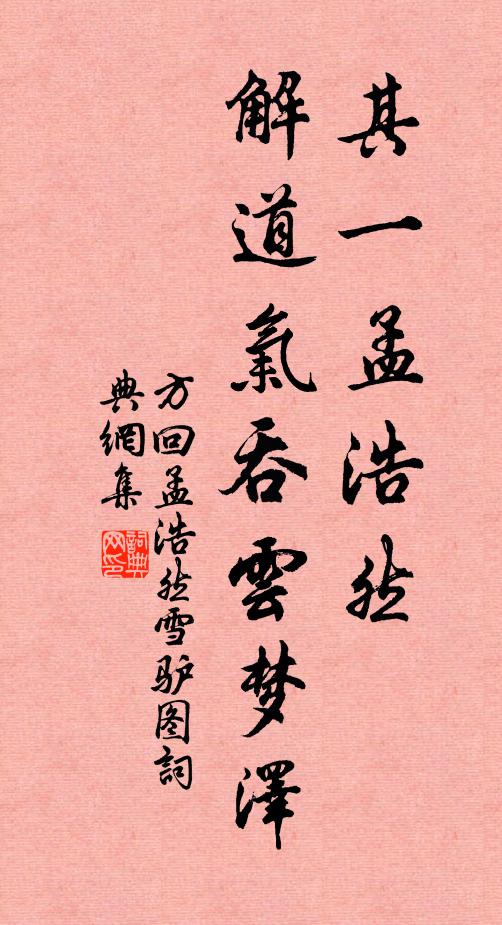 其一孟浩然
解道氣吞雲梦澤
方回孟浩然雪驴图詞
典網集
詞典网印